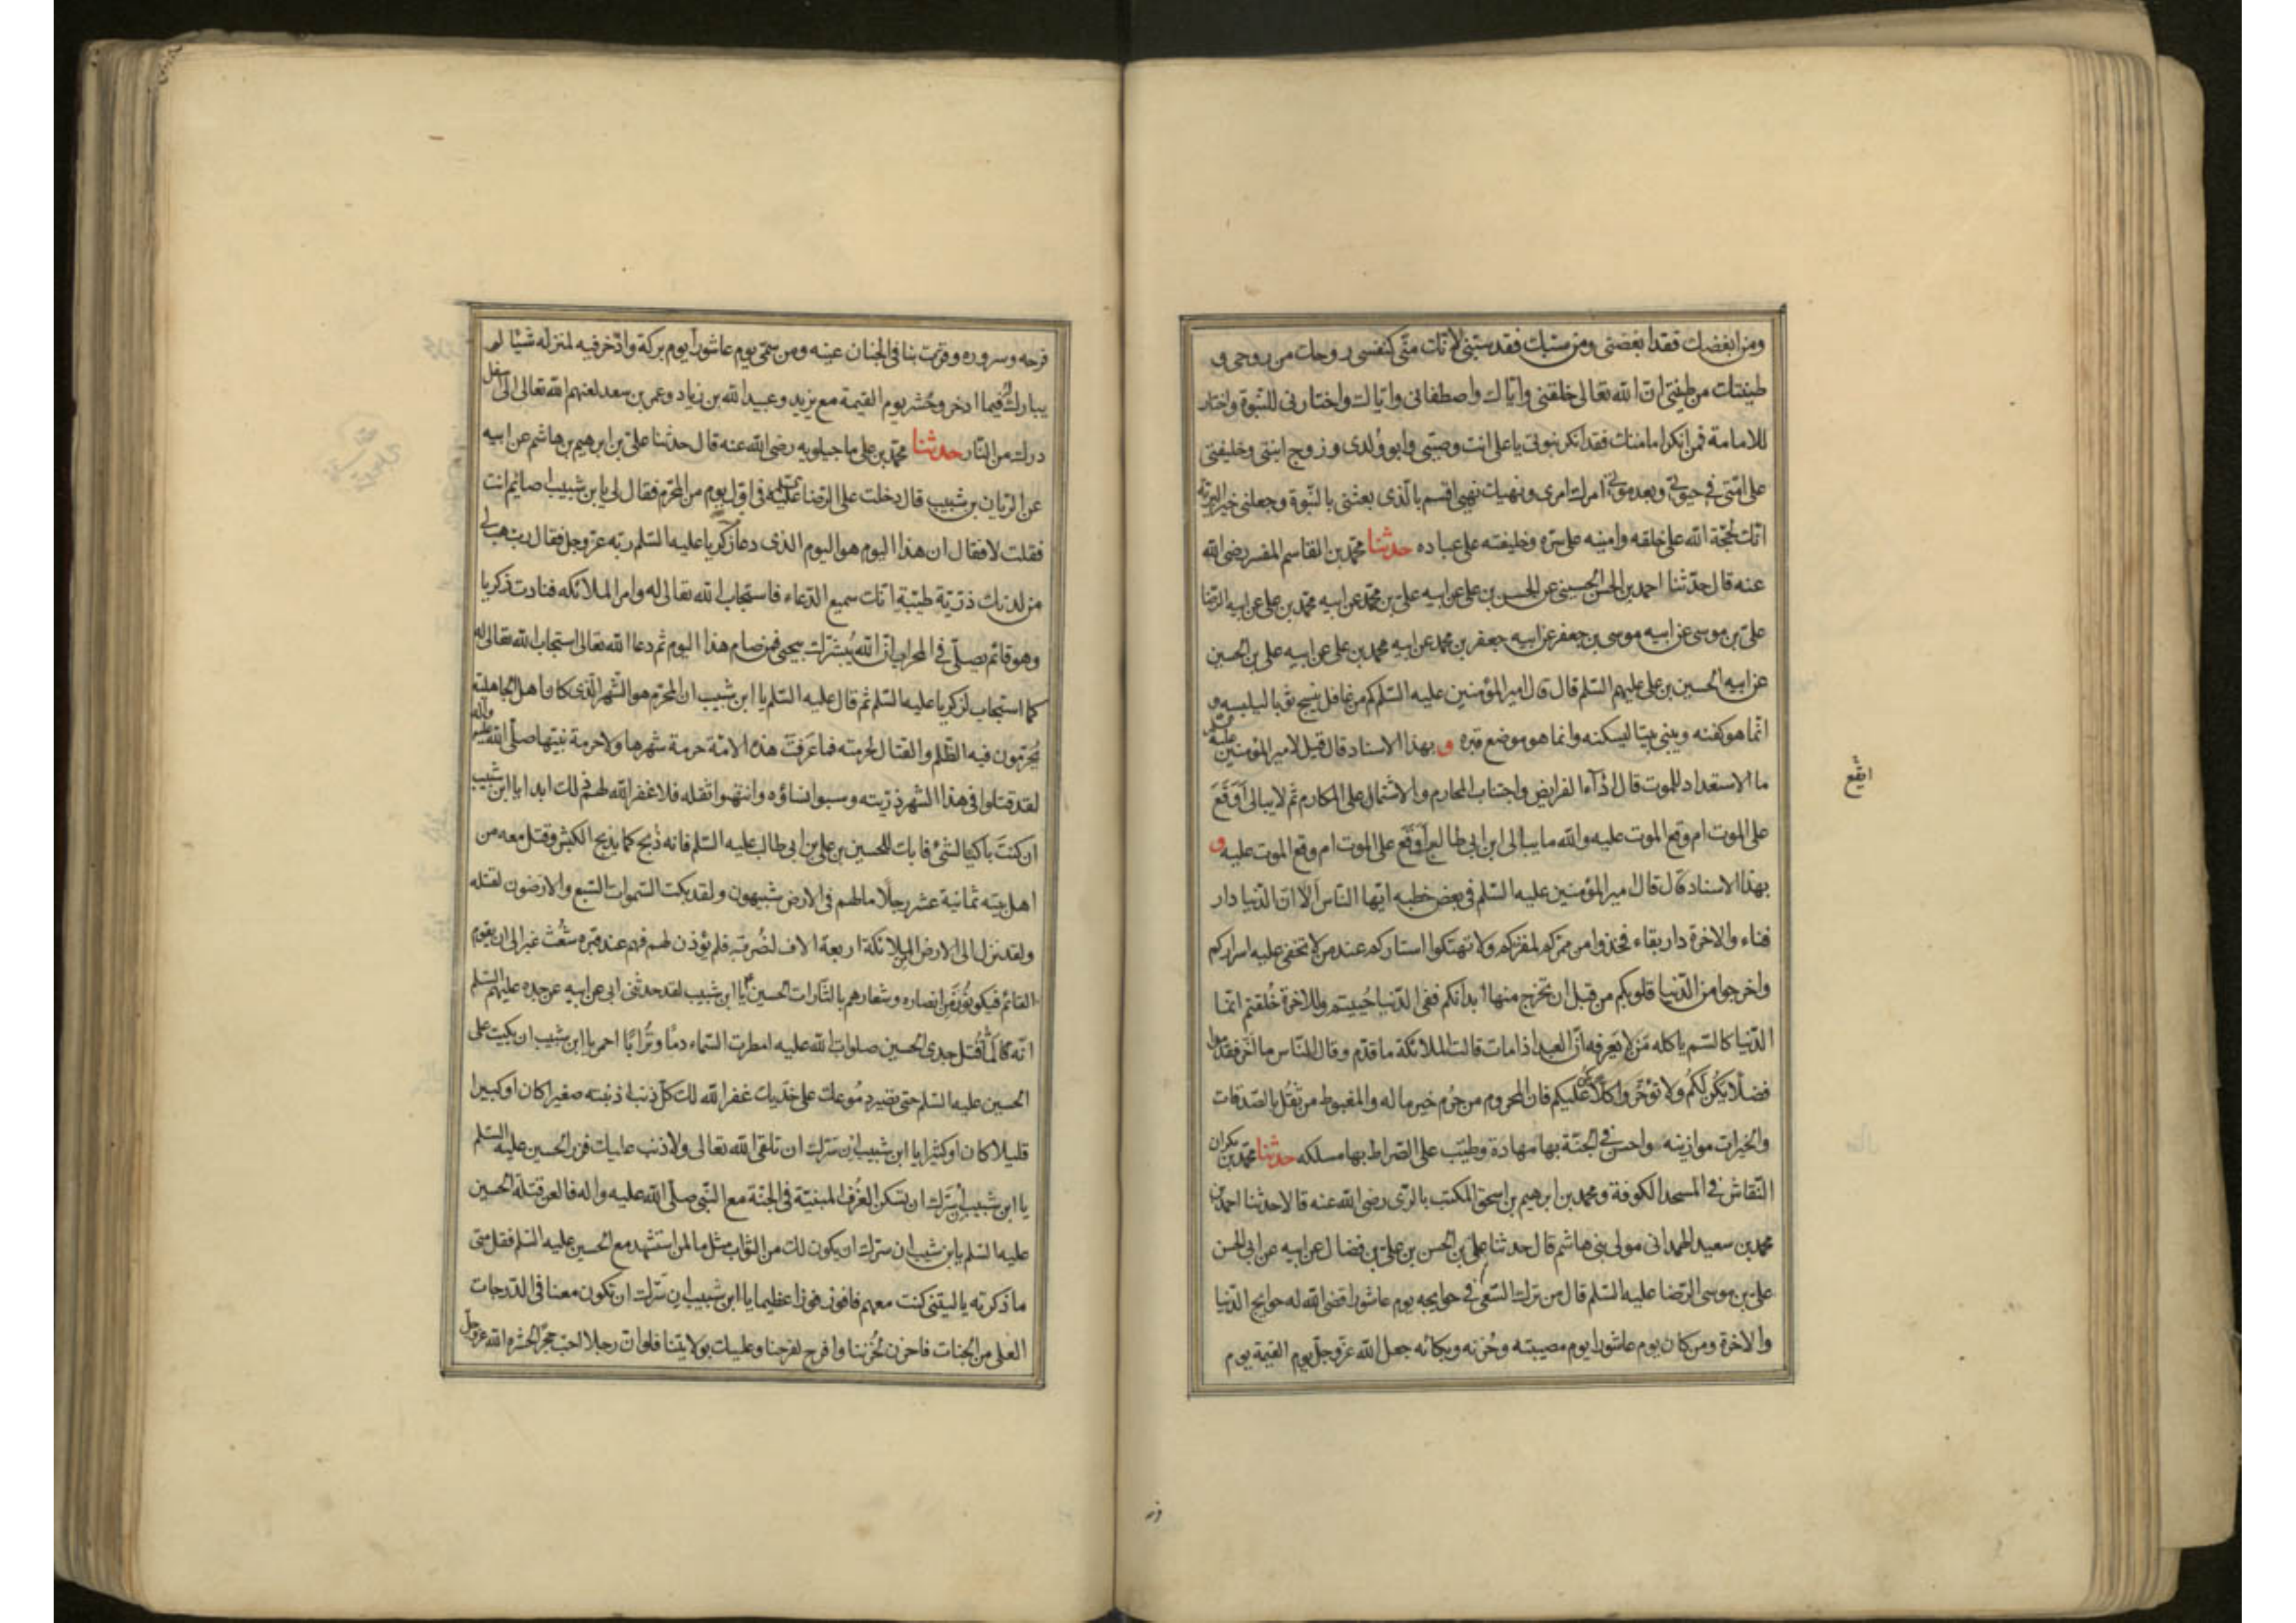 ومن ابغضك فقد ابغضنى ومن سبّك فقد سبّنى لانّك منّى كنفسى روحك من روحى و
طينتك من طينتى ان الله تعالى خلقنى وايّاك واصطفانى وايّاك واختارنى للنّبوة واختارك
للامامة فمن انكر امامتك فقد انكر نبوتى يا على انت وصيّى وابو ولدى وزوج ابنتى وخليفتى
على امّتى فى حيوتى وبعد موتى امرك امرى ونهيك نهيى اقسم بالّذى بعثنى بالنّبوة وجعلنى خير البريّة
انّك لحجّة الله على خلقه وامينه على سرّه وخليفته على عباده حدثنا محمّد بن القاسم المفسر رضى الله
عنه قال حدّثنا احمد بن الحسن الحسينى عن الحسن بن على عن ابيه على بن محمّد عن ابيه محمّد بن على عن ابيه الرّضا
علىّ بن موسى عن ابيه موسى بن جعفر عن ابيه جعفر بن محمد عن ابيه محمد بن على عن ابيه على بن الحسين
عن ابيه الحسين بن على عليهم السّلم قال قال امير المؤمنين عليه السّلم كم من غافل ينسج ثوبا ليلبسه و
انّما هو كفنه ويبنى بيتا ليسكنه وانما هو موضع قبره و بهذا الاسناد قال قيل لامير المؤمنين عليه السلم
ما الاستعداد للموت قال اداء الفرايض واجتناب المحارم والاشتمال على المكارم ثم لا يبالى اَوَقَعَ
على الموت ام وقع الموت عليه والله ما يبالى ابن ابى طالب اَوَقَع على الموت ام وقع الموت عليه و
بهذا الاسناد قال قال امير المؤمنين عليه السّلم فى بعض خطبه ايّها النّاس اَلا انّ الدّنيا دار
فناء والاخرة دار بقاء فخذوا من ممرّكم لمقرّكم ولا تهتكوا استاركم عند من لا تخفى عليه اسراركم
واخرجوا من الدّنيا قلوبكم من قبل ان تخرج منها ابدانكم ففى الدّنيا حُييتم وللاخرة خُلقتم انّما
الدّنيا كالسّم ياكله مَن لا يَعرفه انّ العبد اذا مات قالت الملائكة ما قدّم وقال النّاس ما اخّر فقدّموا
فضلا يكُن لكُم ولا تؤخّروا كلّا يكن عليكم فان المحروم من حُرِم خير ماله والمغبوط من ثقّل بالصّدقات
والخيرات موازينه واحسن فى الجنّة بها مهاده وطيّب على الصّراط بها مسلكه حدثنا محمّد بن بكران
النّقاش فى المسجد الكوفة ومحمد بن ابرهيم بن اسحق المكتب بالرّى رضى الله عنه قالا حدثنا احمد بن
محمد بن سعيد الهمدانى مولى بنى هاشم قال حدثنا على بن الحسن بن علىّ بن فضال عن ابيه عن ابى الحسن
علىّ بن موسى الرّضا عليه السّلم قال من ترك السّعى فى حوايجه يوم عاشورا قضى الله له حوايج الدّنيا
والاخرة ومن كان يوم عاشورا يوم مصيبته وحُزنه وبكائه جعل الله عزّ وجلّ يوم القيمة يوم
ايقع
فرحه وسروره وقرّت بنا فى الجنان عينه ومن سمّى يوم عاشورا يوم بركة وادّخر فيه لمنزله شيئا لم
يبارك له فيما ادخر وحُشر يوم القيمة مع يزيد وعبيد الله بن زياد وعمر بن سعد لعنهم الله تعالى الى اسفل
درك من النّار حدثنا محمّد بن على ماجيلويه رضى الله عنه قال حدثنا علىّ بن ابرهيم بن هاشم عن ابيه
عن الرّيان بن شبيب قال دخلت على الرّضا عليه السلم فى اوّل يوم من المحرّم فقال لى يا بن شبيب اصائم انت
فقلت لا فقال ان هذا اليوم هو اليوم الذى دعا زكريا عليه السّلم ربّه عزّ وجل فقال رب هب لى
من لدنك ذرّيّة طيّبة انّك سميع الدّعاء فاستجاب الله تعالى له وامر الملائكه فنادت زكريا
وهو قائم يصلّى فى المحراب انّ الله يُبشّرك بيحيى فمن صام هذا اليوم ثم دعا الله تعالى استجاب الله تعالى له
كما استجاب لزكريا عليه السّلم ثم قال عليه السّلم يا ابن شبيب ان المحرّم هو الشّهر الّذى كان اهل الجاهلية
يُحرّمون فيه الظّلم والقتال لحرمته فما عَرفت هذه الامّة حرمة شهرها ولا حرمة نبيّها صلّى الله عليه واله
لقد قتلوا فى هذا الشهر ذرّيته وسبوا نساؤه وانتهبوا ثقله فلا غفر الله لهم ذلك ابدا يا ابن شبيب
ان كنتَ باكيا لشئ فابك للحسين بن على بن ابى طالب عليه السّلم فانه ذُبح كما يذبح الكبش وقتل معه من
اهل بيته ثمانية عشر رجلًا ما لهم فى الارض شبيهون ولقد بكت السّموات السّبع والارضون لقتله
ولقد نزل الى الارض من الملائكة اربعة الاف لنُصرته فلم يؤذن لهم فهم عند قبره شُعْث غبر الى ان يقوم
القائم فيكونون من انصاره وشعارهم يا لثارات الحسين يا ابن شبيب لقد حدثنى ابى عن ابيه عن جده عليهم السّلم
انّه لمّا قُتل جدى الحسين صلوات الله عليه امطرت السّماء دمًا وتُرابًا احمر يا ابن شبيب ان بكيت على
الحسين عليه السّلم حتى تصير دمُوعك على خدّيك غفر الله لك كلّ ذنب اذنبته صغيرا كان او كبيرا
قليلا كان او كثيرا يا ابن شبيب ان سَرّك ان تلقى الله تعالى ولا ذنب عليك فزر الحسين عليه السّلم
يا ابن شبيب اِن سَرّك ان تسكن الغُرف المبنيّة فى الجنّة مع النّبى صلّى الله عليه واله فالعن قتلة الحسين
عليه السّلم يابن شبيب ان سرّك ان يكون لك من الثواب مثل ما لمن استشهد مع الحسين عليه السّلم فقل متى
ما ذكرته يا ليتنى كنت معهم فافوز فوزا عظيما يا ابن شبيب اِن سَرّك ان تكون معنا فى الدّرجات
العلى من الجنات فاحزن لحُزننا وافرح لفرحنا وعليك بولايتنا فلو ان رجلا احبّ حجرًا لحشره الله عزّ وجلّ